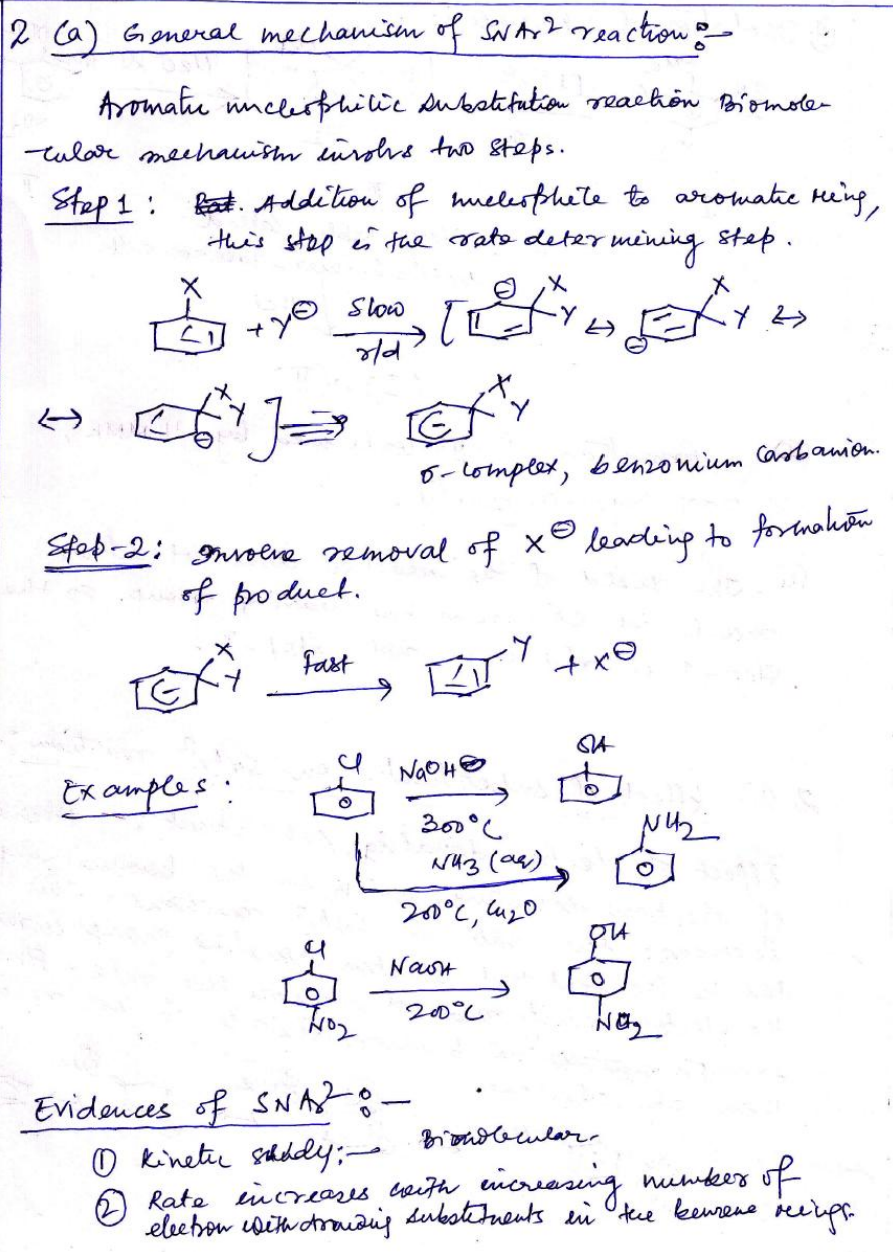 2 (a) General mechanism of SNAr2 reaction :-
Aromatic nucleophilic substitution reaction Biomole-
-cular mechanism involvs two steps.
Step 1 : Addition of nucleophile to aromatic ring,
this step is the rate determining step.
X
+ Y⊖ Slow r/d [ ⊖ X Y ↔ ⊖ X Y ↔
↔ X Y ⊖ ] ⇒ X Y
σ-complex, benzonium carbanion.
Step-2: Involve removal of X⊖ leading to formation
of product.
X Y Fast Y + X⊖
Examples : Cl NaOH 300°C OH
NH3 (aq) 200°C, Cu2O NH2
Cl NO2 NaOH 200°C OH NO2
Evidences of SNAr2 :-
① Kinetic study :- Biomolecular.
② Rate increases with increasing number of
electron withdrawing substituents in the benzene rings.